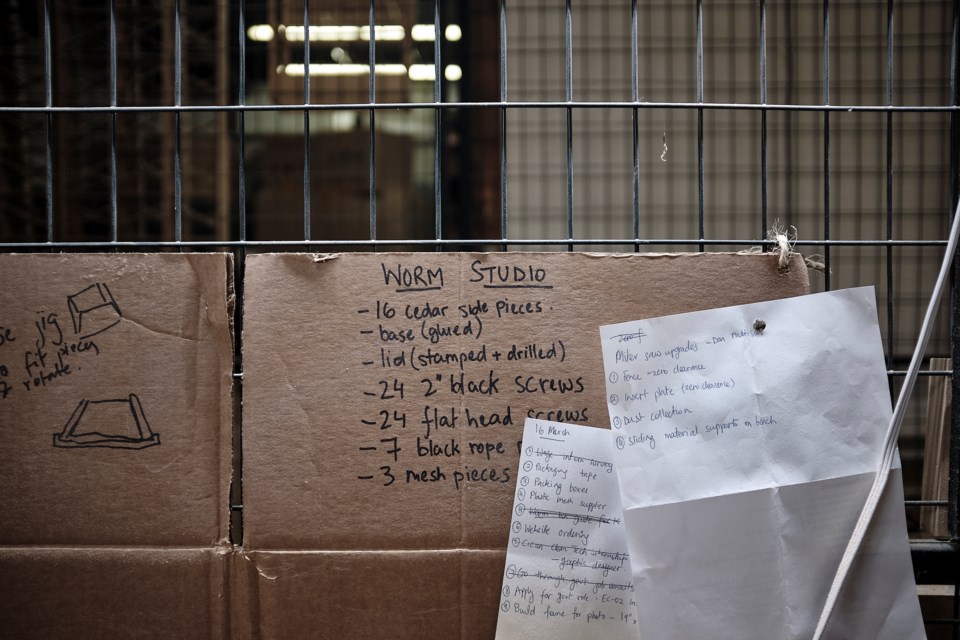 jig
fit piece
rotate.
WORM STUDIO
- 16 cedar side pieces.
- base (glued)
- lid (stamped + drilled)
- 24 2" black screws
- 24 flat head screws
- 7 black rope
- 3 mesh pieces
16 March
① Wage intern survey
② Packaging tape
③ Packing boxes
④ Plastic mesh supplier
⑤ Worm
⑥ Website ordering
- graphic designer
Go through govt job
⑧ Apply for govt role - EC-02
⑨ Build frame for photo - 19"
Miter saw upgrades - Dan
① Fence - zero clearance
② Insert plate (zero clearance)
③ Dust collection
④ Sliding material supports on bench